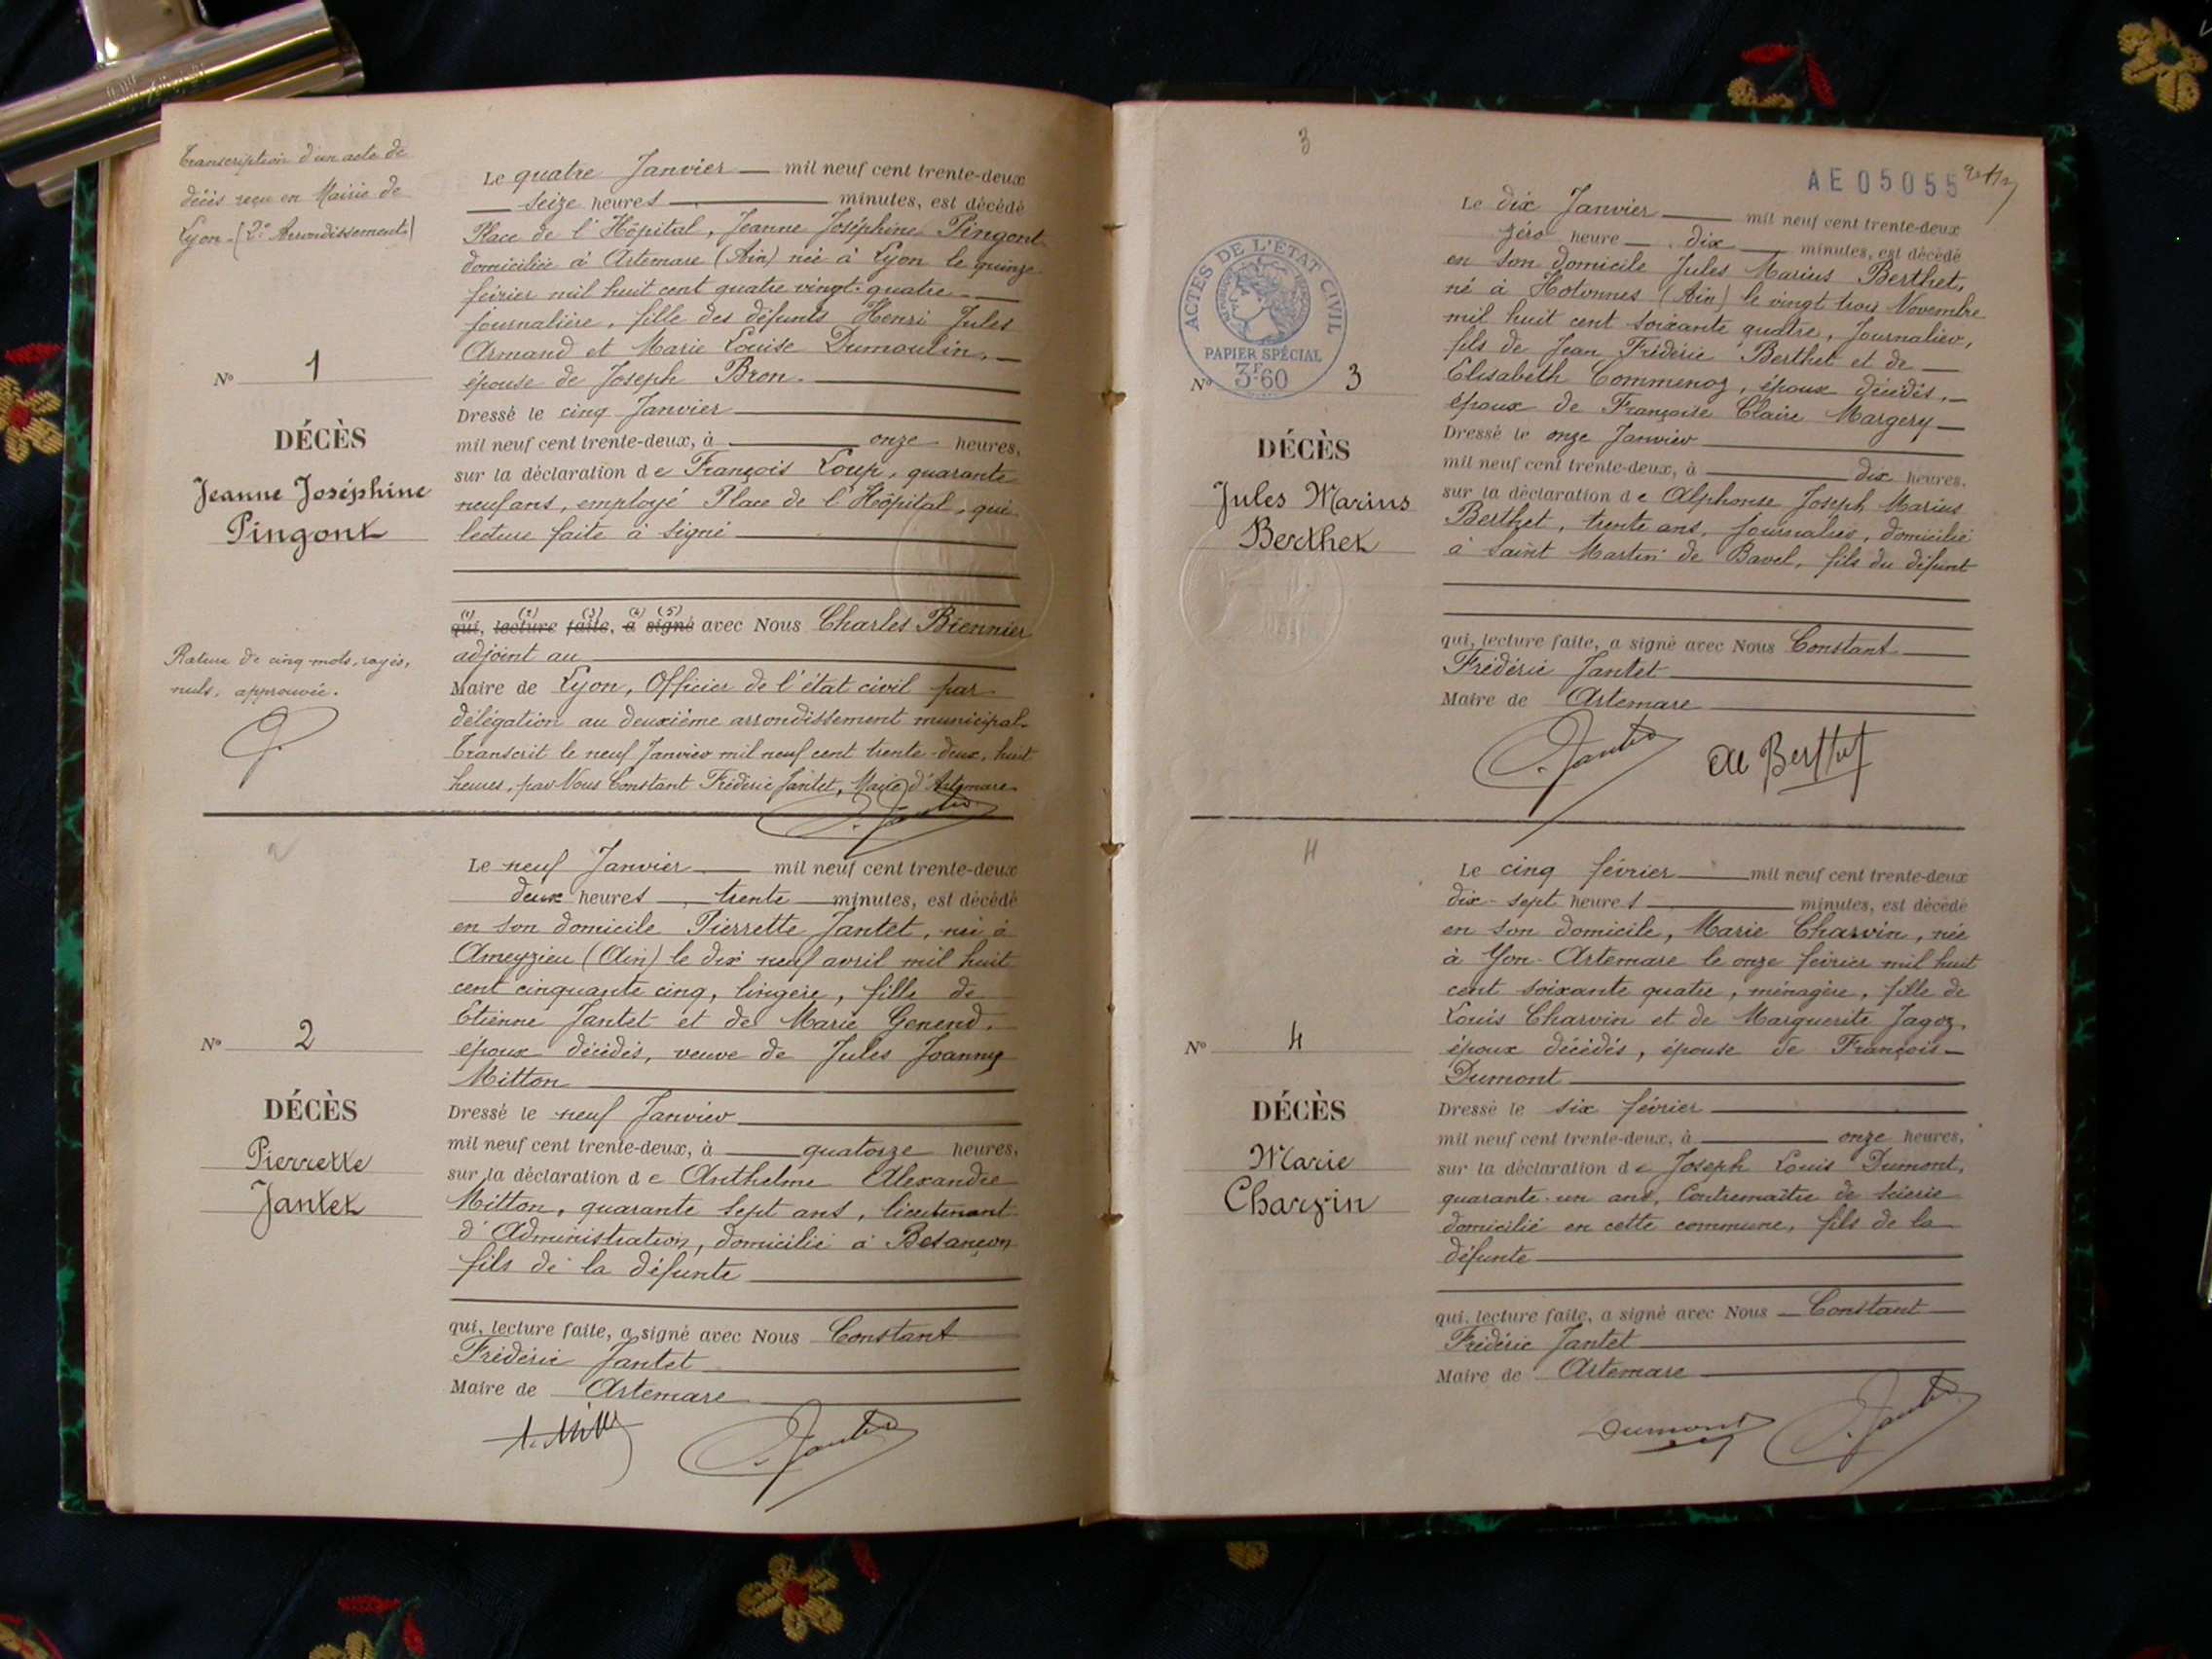 Transcription d'un acte de
décès reçu en Mairie de
Lyon - (2e Arrondissement)
Le quatre Janvier mil neuf cent trente-deux
seize heures minutes, est décédé
Place de l'Hôpital, Jeanne Joséphine Pingont
domiciliée à Artemare (Ain) née à Lyon le quinze
février mil huit cent quatre vingt-quatre
journalière, fille des défunts Henri Jules
Armand et Marie Louise Dumoulin,
épouse de Joseph Bron.
Dressé le cinq Janvier
mil neuf cent trente-deux, à onze heures,
sur la déclaration de François Loup, quarante
neuf ans, employé Place de l'Hôpital, qui
lecture faite à signé
(1) (2) (3) (4) (5)
qui, lecture faite, a signé avec Nous Charles Biennier
adjoint au
Maire de Lyon, Officier de l'état civil par
délégation au deuxième arrondissement municipal.
Transcrit le neuf Janvier mil neuf cent trente-deux, huit
heures, par Nous Constant Frédéric Jantet, Maire d'Artemare
No 1
DÉCÈS
Jeanne Joséphine
Pingont
Rature de cinq mots, rayés,
nuls, approuvée.
2
Le neuf Janvier mil neuf cent trente-deux
deux heures trente minutes, est décédé
en son domicile Pierrette Jantet, née à
Ameyzieu (Ain) le dix neuf avril mil huit
cent cinquante cinq, lingère, fille de
Etienne Jantet et de Marie Genend,
époux décédés, veuve de Jules Joanny
Mitton
Dressé le neuf Janvier
mil neuf cent trente-deux, à quatorze heures,
sur la déclaration de Anthelme Alexandre
Mitton, quarante sept ans, lieutenant
d'Administration, domicilié à Besançon
fils de la défunte
qui, lecture faite, a signé avec Nous Constant
Frédéric Jantet
Maire de Artemare
No 2
DÉCÈS
Pierrette
Jantet
3
AE 05055
ACTES DE L'ÉTAT CIVIL
PAPIER SPÉCIAL
3F60
Le dix Janvier mil neuf cent trente-deux
zéro heure dix minutes, est décédé
en son domicile Jules Marius Berthet,
né à Hotonnes (Ain) le vingt trois Novembre
mil huit cent soixante quatre, Journalier,
fils de Jean Frédéric Berthet et de
Elisabeth Commenoz, époux décédés,
époux de Françoise Claire Margery
Dressé le onze Janvier
mil neuf cent trente-deux, à dix heures,
sur la déclaration de Alphonse Joseph Marius
Berthet, trente ans, journalier, domicilié
à Saint Martin de Bavel, fils du défunt
qui, lecture faite, a signé avec Nous Constant
Frédéric Jantet
Maire de Artemare
Jantet
Berthet
No 3
DÉCÈS
Jules Marius
Berthet
4
Le cinq février mil neuf cent trente-deux
dix-sept heures minutes, est décédé
en son domicile, Marie Charvin, née
à Yon-Artemare le onze février mil huit
cent soixante quatre, ménagère, fille de
Louis Charvin et de Marguerite Jagoz,
époux décédés, épouse de François
Dumont
Dressé le six février
mil neuf cent trente-deux, à onze heures,
sur la déclaration de Joseph Louis Dumont,
quarante-un ans, Contremaître de scierie
domicilié en cette commune, fils de la
défunte
qui, lecture faite, a signé avec Nous Constant
Frédéric Jantet
Maire de Artemare
Dumont
Jantet
No 4
DÉCÈS
Marie
Charvin